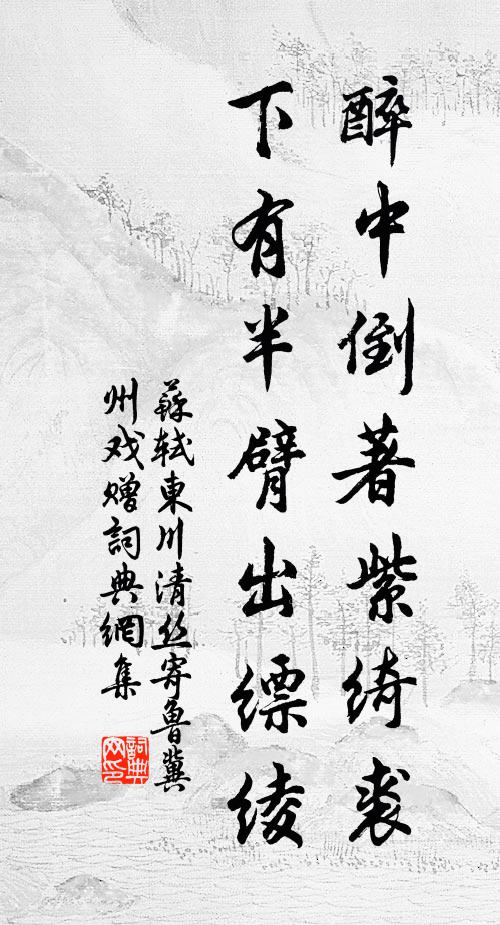 醉中倒著紫綺裘
下有半臂出縹綾
蘇軾東川清丝寄魯冀
州戏贈詞典網集
詞典网印